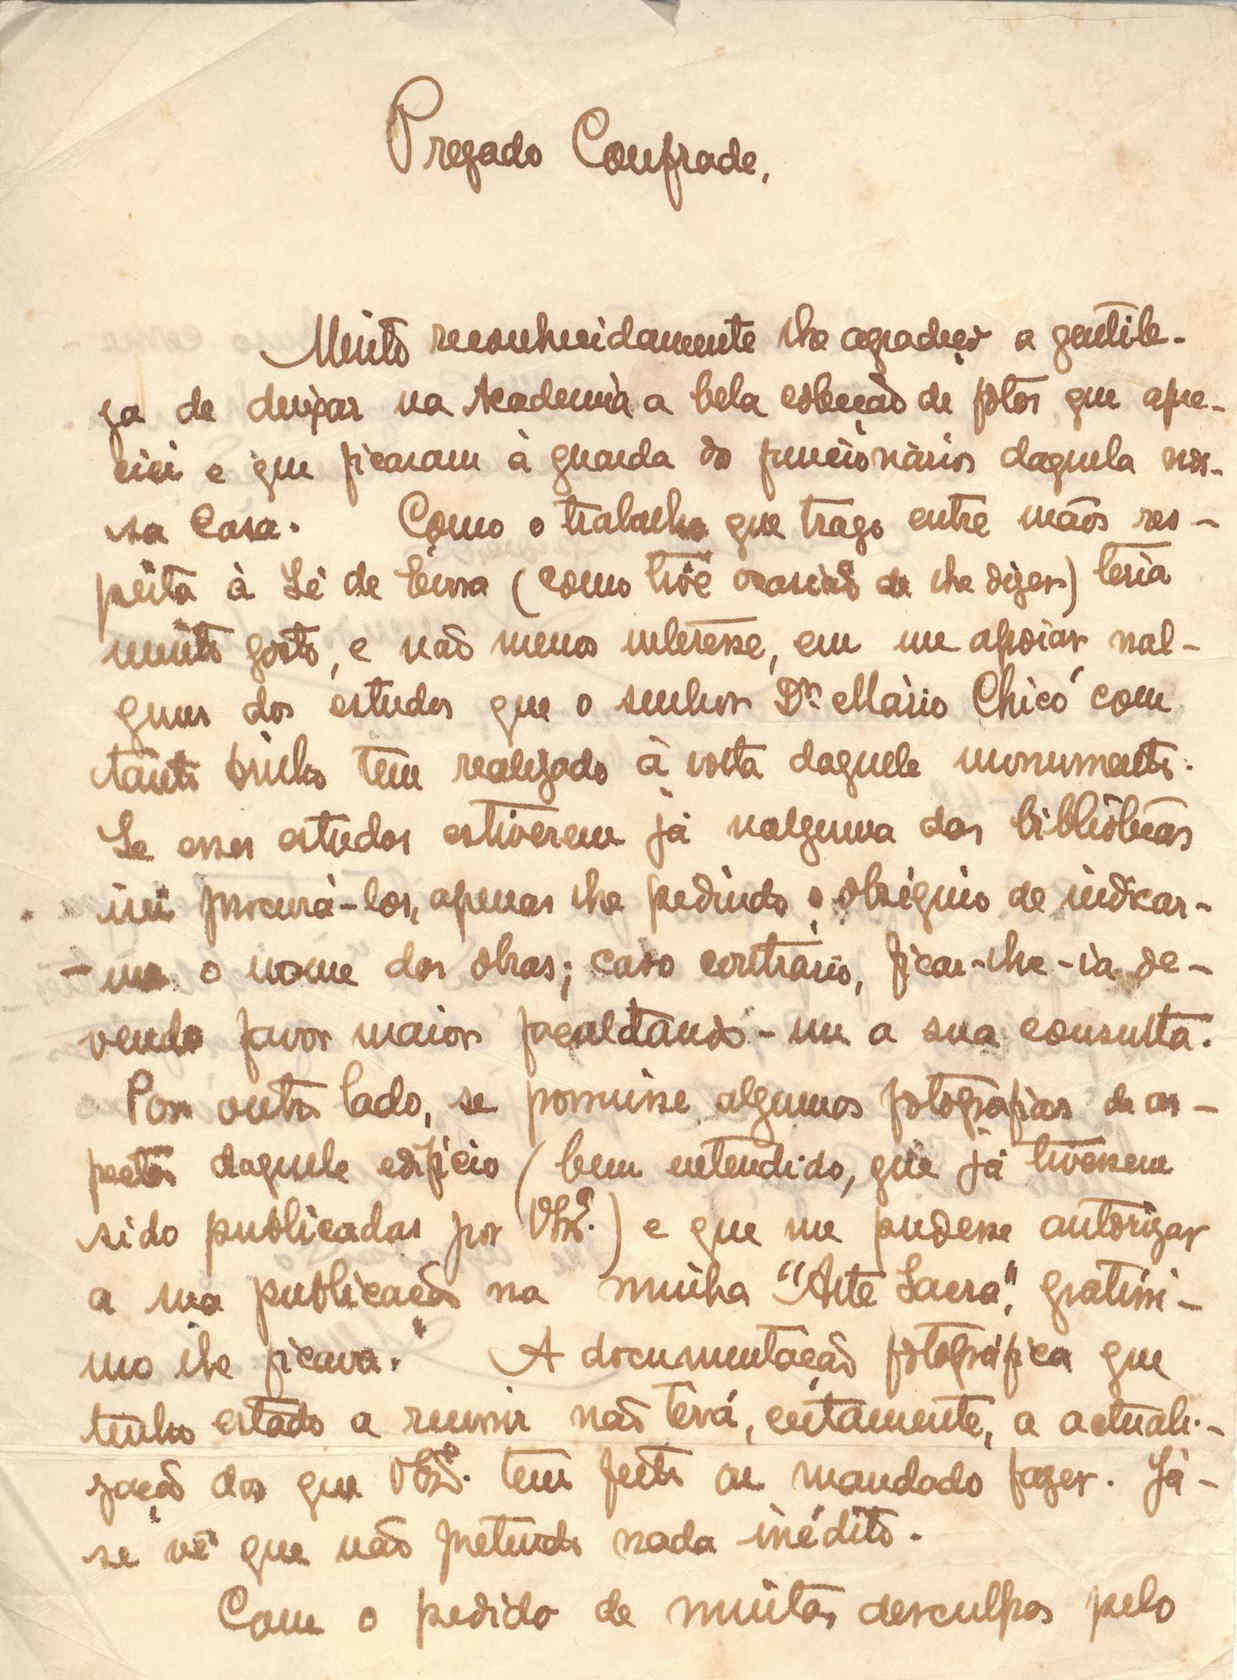 Prezado Confrade,
Muito reconhecidamente lhe agradeço a gentile-
za de deixar na Academia a bela colecção de fotos que apre-
ciei e que ficaram à guarda do funcionários daquela nos-
sa Casa. Como o trabalho que trago entre mãos res-
peita à Sé de Évora (como tive ocasião de lhe dizer) teria
muito gosto, e não menos interesse, em me apoiar nal-
guns dos estudos que o senhor Dr. Mário Chicó com
tanto brilho tem realizado à volta daquele monumento.
Se esses estudos estiverem já nalguma das bibliotecas
irei procurá-los, apenas lhe pedindo o obséquio de indicar-
-me o nome das obras; caso contrário, ficar-lhe-ia de-
vendo favor maior facultando-me a sua consulta.
Por outro lado, se possuisse algumas fotografias de as-
pectos daquele edifício (bem entendido, que já tivessem
sido publicadas por VExª.) e que me pudesse autorizar
a sua publicação na minha "Arte Sacra", gratíssi-
mo lhe ficava. A documentação fotográfica que
tenho estado a reunir não terá, certamente, a actuali-
zação das que VExª. tem feito ou mandado fazer. Já-
se vê que não pretendo nada inédito.
Com o pedido de muitas desculpas pelo